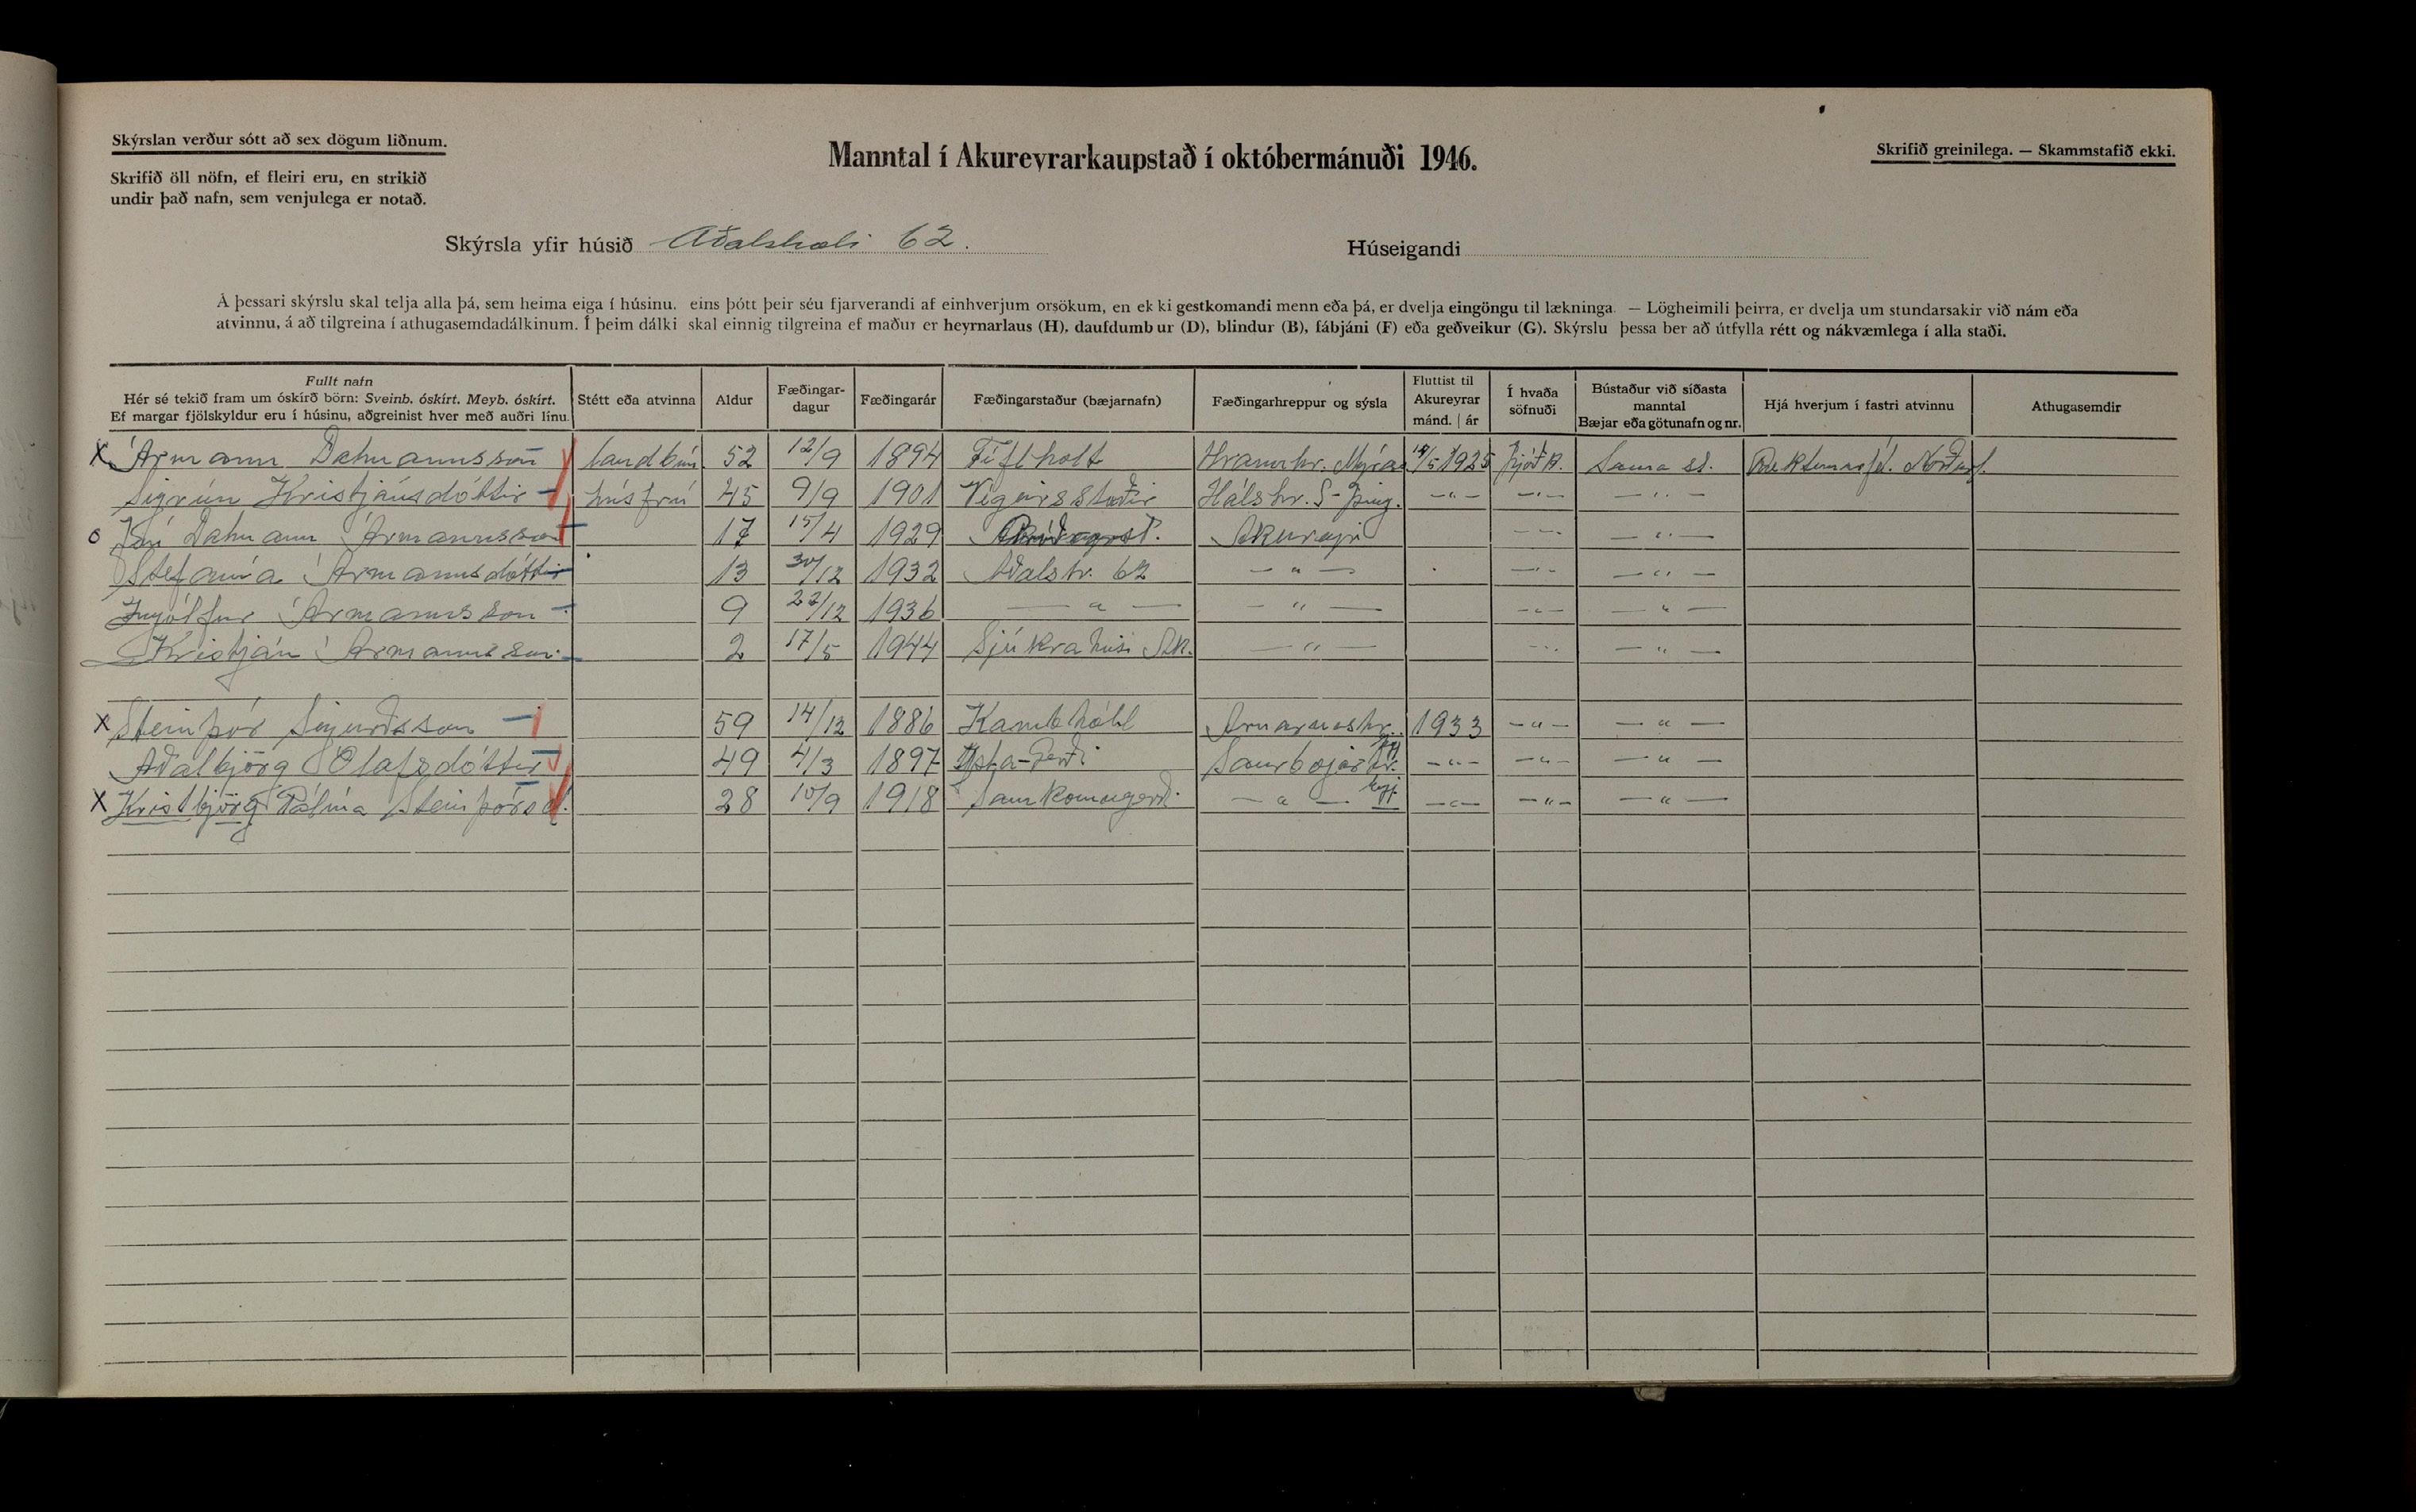 Skýrslan verður sótt að sex dögum liðnum.
Skrifið öll nöfn, ef fleiri eru, en strikið
undir það nafn, sem venjulega er notað.
Manntal í Akureyrarkaupstað í októbermánuði 1946.
Skrifið greinilega. — Skammstafið ekki.
Skýrsla yfir húsið Aðalstræti 62.
Húseigandi
Á þessari skýrslu skal telja alla þá, sem heima eiga í húsinu, eins þótt þeir séu fjarverandi af einhverjum orsökum, en ekki gestkomandi menn eða þá, er dvelja eingöngu til lækninga. — Lögheimili þeirra, er dvelja um stundarsakir við nám eða
atvinnu, á að tilgreina í athugasemdadálkinum. Í þeim dálki skal einnig tilgreina ef maður er heyrnarlaus (H), daufdumbur (D), blindur (B), fábjáni (F) eða geðveikur (G). Skýrslu þessa ber að útfylla rétt og nákvæmlega í alla staði.
Fullt nafn
Hér sé tekið fram um óskírð börn: Sveinb. óskírt. Meyb. óskírt.
Ef margar fjölskyldur eru í húsinu, aðgreinist hver með auðri línu.
Stétt eða atvinna
Aldur
Fæðingar-
dagur
Fæðingarár
Fæðingarstaður (bæjarnafn)
Fæðingarhreppur og sýsla
Fluttist til
Akureyrar
mánd. | ár
Í hvaða
söfnuði
Bústaður við síðasta
manntal
Bæjar eða götunafn og nr.
Hjá hverjum í fastri atvinnu
Athugasemdir
X Ármann Dalmannsson landbún. 52 12/9 1894 Fíflholt Hraunhr. Mýras 14/5 1925 Þjóðk. Sama st. Ræktunarfél. Norðurl.
Sigrún Kristjánsdóttir húsfrú 45 9/9 1901 Végeirsstaðir Hálshr. S-Þing. -"- -"- -"-
o Jón Dalmann Ármannsson 17 15/4 1929 Akureyri -"- -"-
Stefanía Ármannsdóttir 13 30/12 1932 Aðalstr. 62 -"- -"- -"-
Ingólfur Ármannsson 9 22/12 1936 -"- -"- -"- -"-
Kristján Ármannsson 2 17/5 1944 Sjúkrahúsi Ak. -"- -"- -"-
X Steinþór Sigurðsson 59 14/12 1886 Kambhóll Arnarneshr. 1933 -"- -"-
Aðalbjörg Ólafsdóttir 49 4/3 1897 Ytra-Gerði Saurbæjarhr. Eyj. -"- -"- -"-
X Kristbjörg Pálína Steinþórsd. 28 10/9 1918 Samkomugerði -"- Eyj. -"- -"- -"-